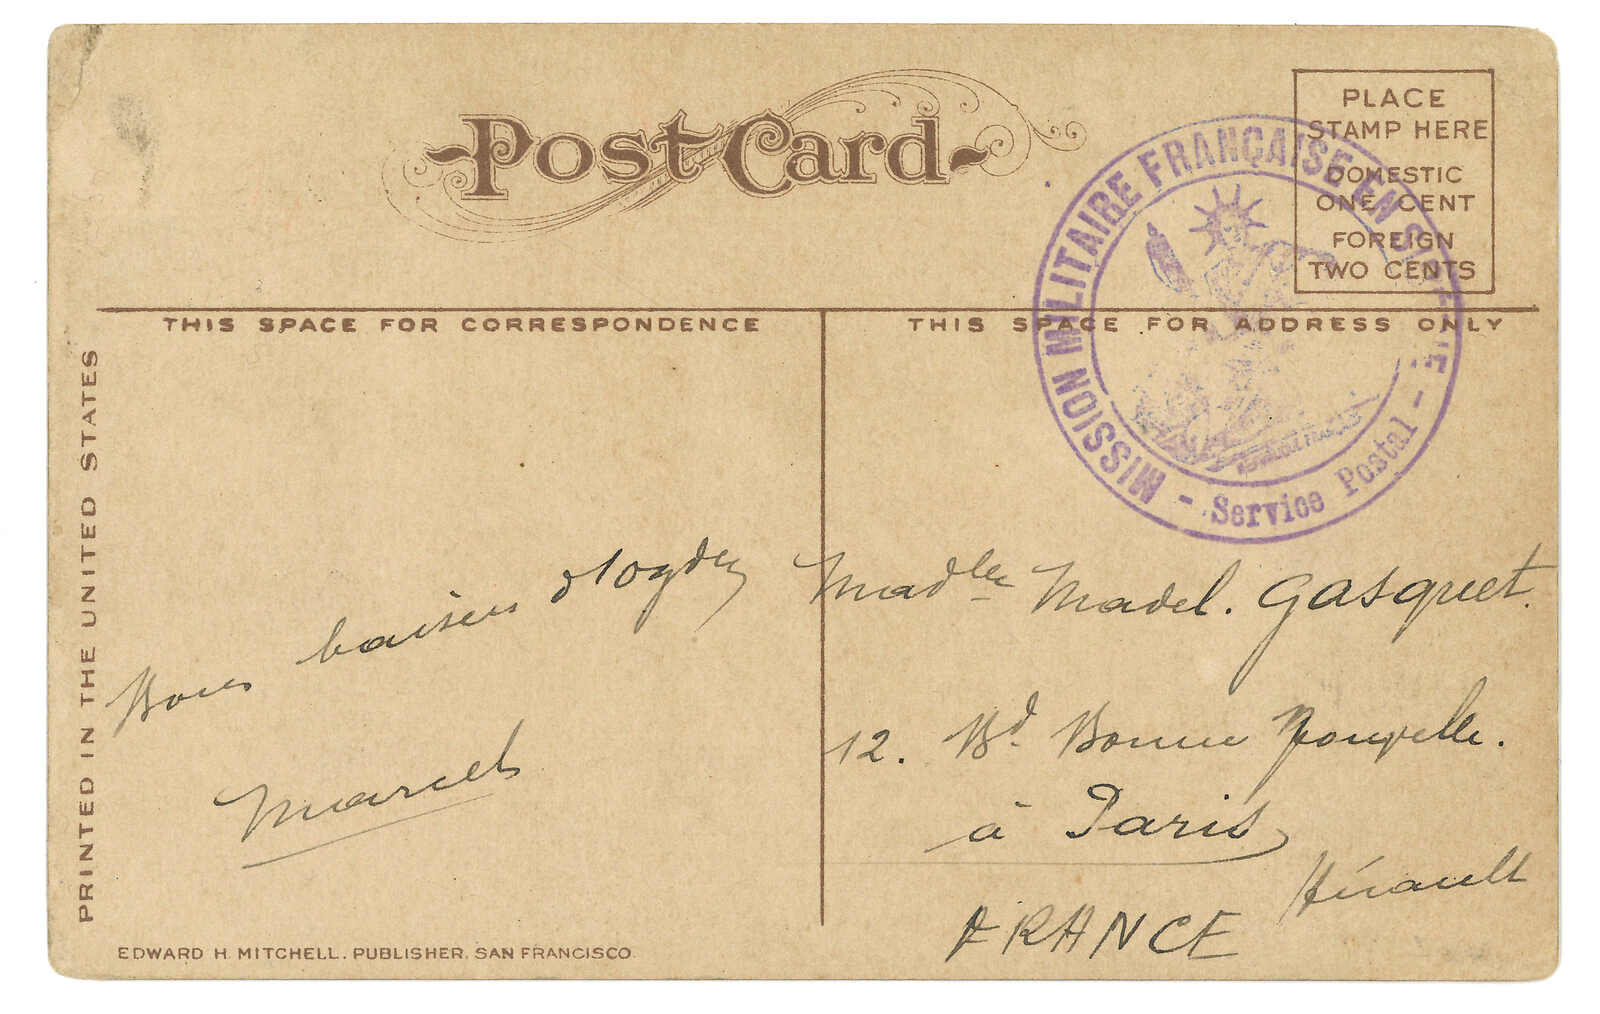 Post Card
PLACE
STAMP HERE
DOMESTIC
ONE CENT
FOREIGN
TWO CENTS
MISSION MILITAIRE FRANÇAISE EN SIBÉRIE
- Service Postal -
REPUBLIQUE FRANÇAISE
THIS SPACE FOR CORRESPONDENCE
THIS SPACE FOR ADDRESS ONLY
PRINTED IN THE UNITED STATES
Bons baisers d'Ogden
Marcel
Madlle Madel. Gasquet.
12. Bd. Bonne Nouvelle.
à Paris
Hérault
FRANCE
EDWARD H. MITCHELL, PUBLISHER, SAN FRANCISCO